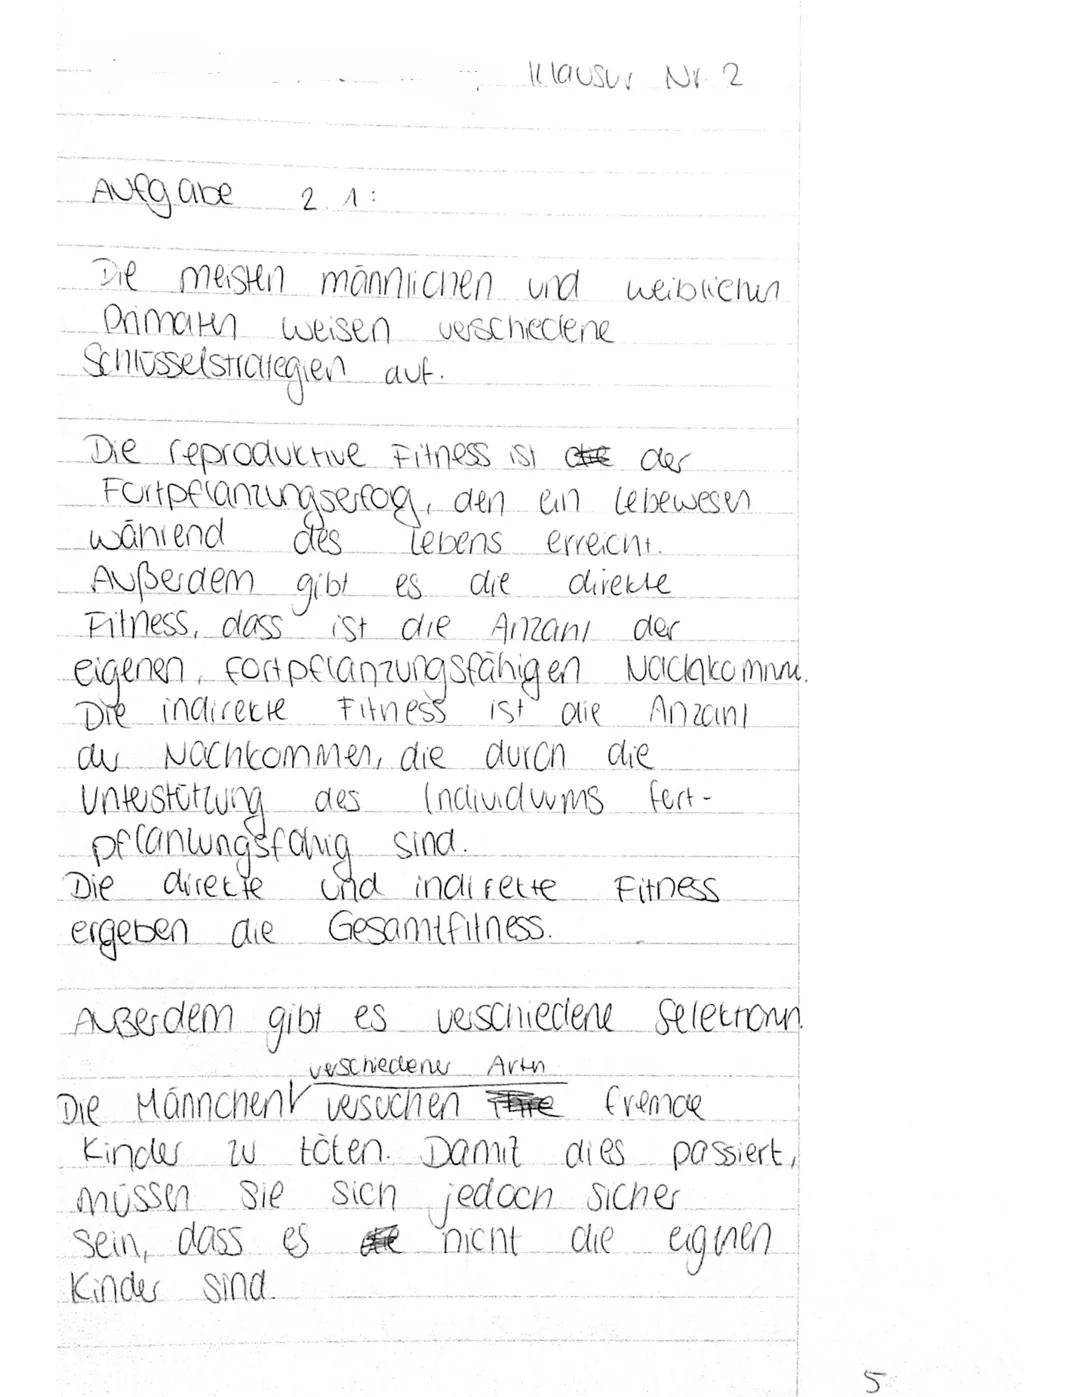 Klausur Nr. 2
Aufgabe 2.1:
Die meisten männlichen und weiblichen
Primaten weisen verschiedene
Schlüsselstrategien auf.
Die reproduktive Fitness ist der
Fortpflanzungserfog, den ein Lebewesen
während des Lebens erreicht.
Außerdem gibt es die direkte
Fitness, dass ist die Anzahl der
eigenen, fortpflanzungsfähigen Nachkommen.
Die indirekte Fitness ist die Anzahl
der Nachkommen, die durch die
Unterstützung des Individuums fort-
pflanzungsfähig sind.
Die direkte und indirekte Fitness
ergeben die Gesamtfitness.
Außerdem gibt es verschiedene Selektionen.
verschiedener Arten
Die Männchen versuchen fremde
Kinder zu töten. Damit dies passiert,
müssen sie sich jedoch sicher
sein, dass es nicht die eigenen
Kinder sind.
5